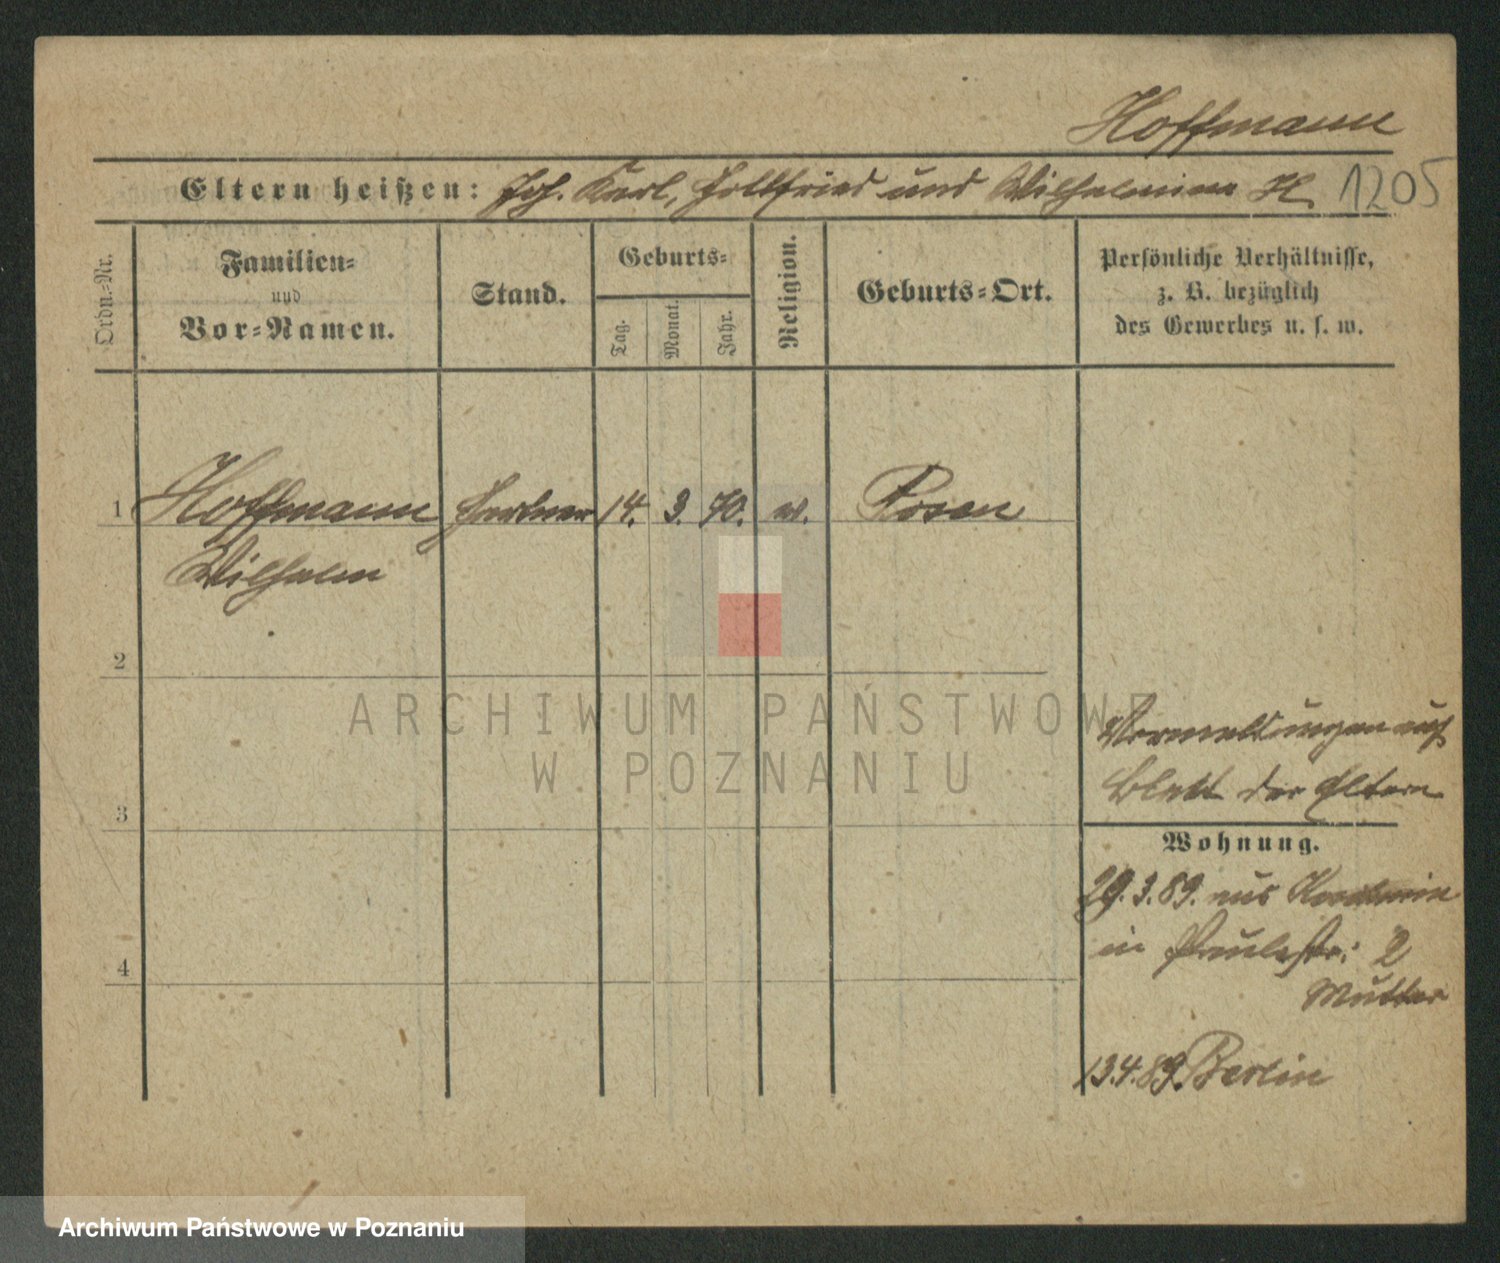 Hoffmann
Eltern heißen: Joh. Karl, Gottfried und Wilhelmine H.
1205
Ordn.-Nr.
Familien-
und
Vor-Namen.
Stand.
Geburts-
Tag.
Monat.
Jahr.
Religion.
Geburts-Ort.
Persönliche Verhältnisse,
z. B. bezüglich
des Gewerbes u. s. w.
1 Hoffmann 14. 3. 70. Posen
Wilhelm
2
ARCHIWUM PAŃSTWOWE
W POZNANIU
Vormeldungen auf
Blatt der Eltern
3
Wohnung.
29.3.89. aus
in Paulistr. 2
Mutter
4
13.4.89. Berlin
Archiwum Państwowe w Poznaniu